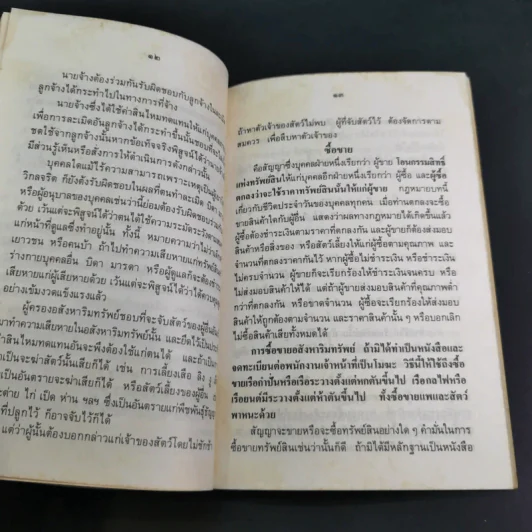 ๑๒
นายจ้างต้องร่วมกันรับผิดชอบกับลูกจ้างใน
ลูกจ้างได้กระทำไปในทางการที่จ้าง
นายจ้างซึ่งได้ใช้ค่าสินไหมทดแทนให้แก่
เพื่อการละเมิดอันลูกจ้างได้กระทำขึ้นนั้นชอบที่จะ
ชดใช้จากลูกจ้างนั้นหากข้อเท็จจริงพิสูจน์ได้ว่า
มีส่วนรู้เห็นหรือสั่งการให้ดำเนินการดังกล่าวนั้น
บุคคลใดแม้ไร้ความสามารถเพราะเหตุเป็นผู้
วิกลจริต ก็ยังต้องรับผิดชอบในผลที่ตนทำละเมิด บิดา
หรือผู้อนุบาลของบุคคลเช่นว่านี้ย่อมต้องรับผิดชอบร่วม
ด้วย เว้นแต่จะพิสูจน์ได้ว่าตนได้ใช้ความระมัดระวังตาม
แก่หน้าที่ดูแลซึ่งทำอยู่นั้น ทั้งนี้ หมายความว่าไม่ว่า
เยาวชน หรือคนบ้า ถ้าไปทำความเสียหายแก่ทรัพย์สิน
ร่างกายบุคคลอื่น บิดา มารดา หรือผู้ดูแลก็จะต้อง
เสียหายแก่ผู้เสียหายด้วย เว้นแต่จะพิสูจน์ได้ว่าได้ควบคุม
อย่างเข้มงวดแข็งแรงแล้ว
ผู้ครองอสังหาริมทรัพย์ชอบที่จะจับสัตว์ของผู้อื่น
มาทำความเสียหายในอสังหาริมทรัพย์นั้น และยึดไว้เป็น
สินไหมทดแทนอันจะพึงต้องใช้แก่ตนได้ และถ้า
เป็นจะฆ่าสัตว์นั้นเสียก็ได้ เช่น การเลี้ยงเสือ ลิง
เป็นอันตรายจะฆ่าเสียก็ได้ หรือสัตว์เลี้ยงของผู้อื่น
ไก่ เป็ด ห่าน ฯลฯ ซึ่งเป็นอันตรายแก่พืชพันธุ์
ที่ปลูกไว้ ก็อาจจับไว้ก็ได้
แต่ว่าผู้นั้นต้องบอกกล่าวแก่เจ้าของสัตว์โดยไม่ชักช้า
๑๓
ถ้าหาตัวเจ้าของสัตว์ไม่พบ ผู้ที่จับสัตว์ไว้ ต้องจัดการตาม
สมควร เพื่อสืบหาตัวเจ้าของ
ซื้อขาย
คือสัญญาซึ่งบุคคลฝ่ายหนึ่งเรียกว่า ผู้ขาย โอนกรรมสิทธิ์
แห่งทรัพย์สินให้แก่บุคคลอีกฝ่ายหนึ่งเรียกว่า ผู้ซื้อ และผู้ซื้อ
ตกลงว่าจะใช้ราคาทรัพย์สินนั้นให้แก่ผู้ขาย กฎหมายบทนี้
เกี่ยวกับชีวิตประจำวันของบุคคลทุกคน เมื่อท่านตกลงจะซื้อ
ขายสินค้าใดกับผู้อื่น แสดงว่าผลทางกฎหมายได้เกิดขึ้นแล้ว
ผู้ซื้อต้องชำระเงินตามราคาที่ตกลงกัน และผู้ขายก็ต้องส่งมอบ
สินค้าหรือสิ่งของ หรือสัตว์เลี้ยงให้แก่ผู้ซื้อตามคุณภาพ และ
จำนวนที่ตกลงราคากันไว้ หากผู้ซื้อไม่ชำระเงิน หรือชำระเงิน
ไม่ครบจำนวน ผู้ขายก็จะเรียกร้องให้ชำระเงินจนครบ หรือ
ไม่ส่งมอบสินค้าให้ก็ได้ แต่ถ้าผู้ขายส่งมอบสินค้าที่คุณภาพต่ำ
กว่าที่ตกลงกัน หรือขาดจำนวน ผู้ซื้อจะเรียกร้องให้ส่งมอบ
สินค้าให้ถูกต้องตามจำนวน และราคาสินค้านั้น ๆ หรือบอกเลิก
ไม่ซื้อสินค้าเสียทั้งหมดก็ได้
การซื้อขายอสังหาริมทรัพย์ ถ้ามิได้ทำเป็นหนังสือและ
จดทะเบียนต่อพนักงานเจ้าหน้าที่เป็นโมฆะ วิธีนี้ให้ใช้ถึงซื้อ
ขายเรือกำปั่นหรือเรือมีระวางตั้งแต่หกตันขึ้นไป เรือกลไฟหรือ
เรือยนต์มีระวางตั้งแต่ห้าตันขึ้นไป ทั้งซื้อขายแพและสัตว์
พาหนะด้วย
สัญญาจะขายหรือจะซื้อทรัพย์สินอย่างใด ๆ คำมั่นในการ
ซื้อขายทรัพย์สินเช่นว่านั้นก็ดี ถ้ามิได้มีหลักฐานเป็นหนังสือ